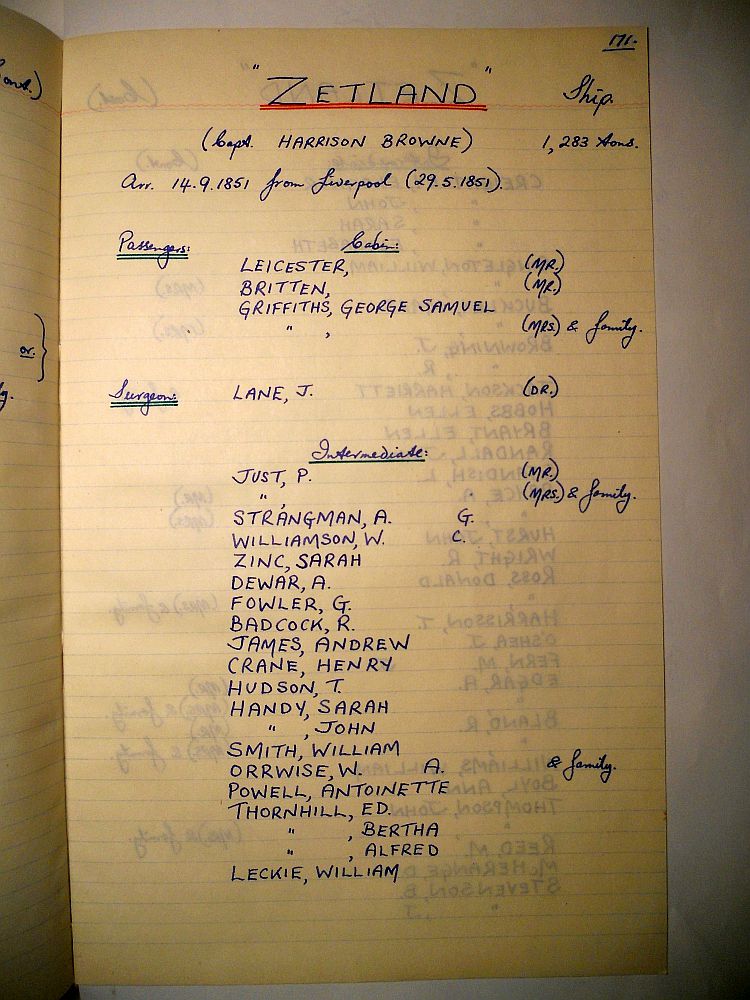 171.
"ZETLAND" Ship.
(Capt. HARRISON BROWNE) 1,283 tons.
Arr. 14.9.1851 from Liverpool (29.5.1851).
Passengers: Cabin:
LEICESTER, (MR.)
BRITTEN, (MR.)
GRIFFITHS, GEORGE SAMUEL
" , (MRS.) & family.
or.
Surgeon: LANE, J. (DR.)
Intermediate:
JUST, P. (MR.)
" , (MRS.) & family.
STRANGMAN, A. G.
WILLIAMSON, W. C.
ZINC, SARAH
DEWAR, A.
FOWLER, G.
BADCOCK, R.
JAMES, ANDREW
CRANE, HENRY
HUDSON, T.
HANDY, SARAH
" , JOHN
SMITH, WILLIAM
ORRWISE, W. A. & family.
POWELL, ANTOINETTE
THORNHILL, ED.
" , BERTHA
" , ALFRED
LECKIE, WILLIAM